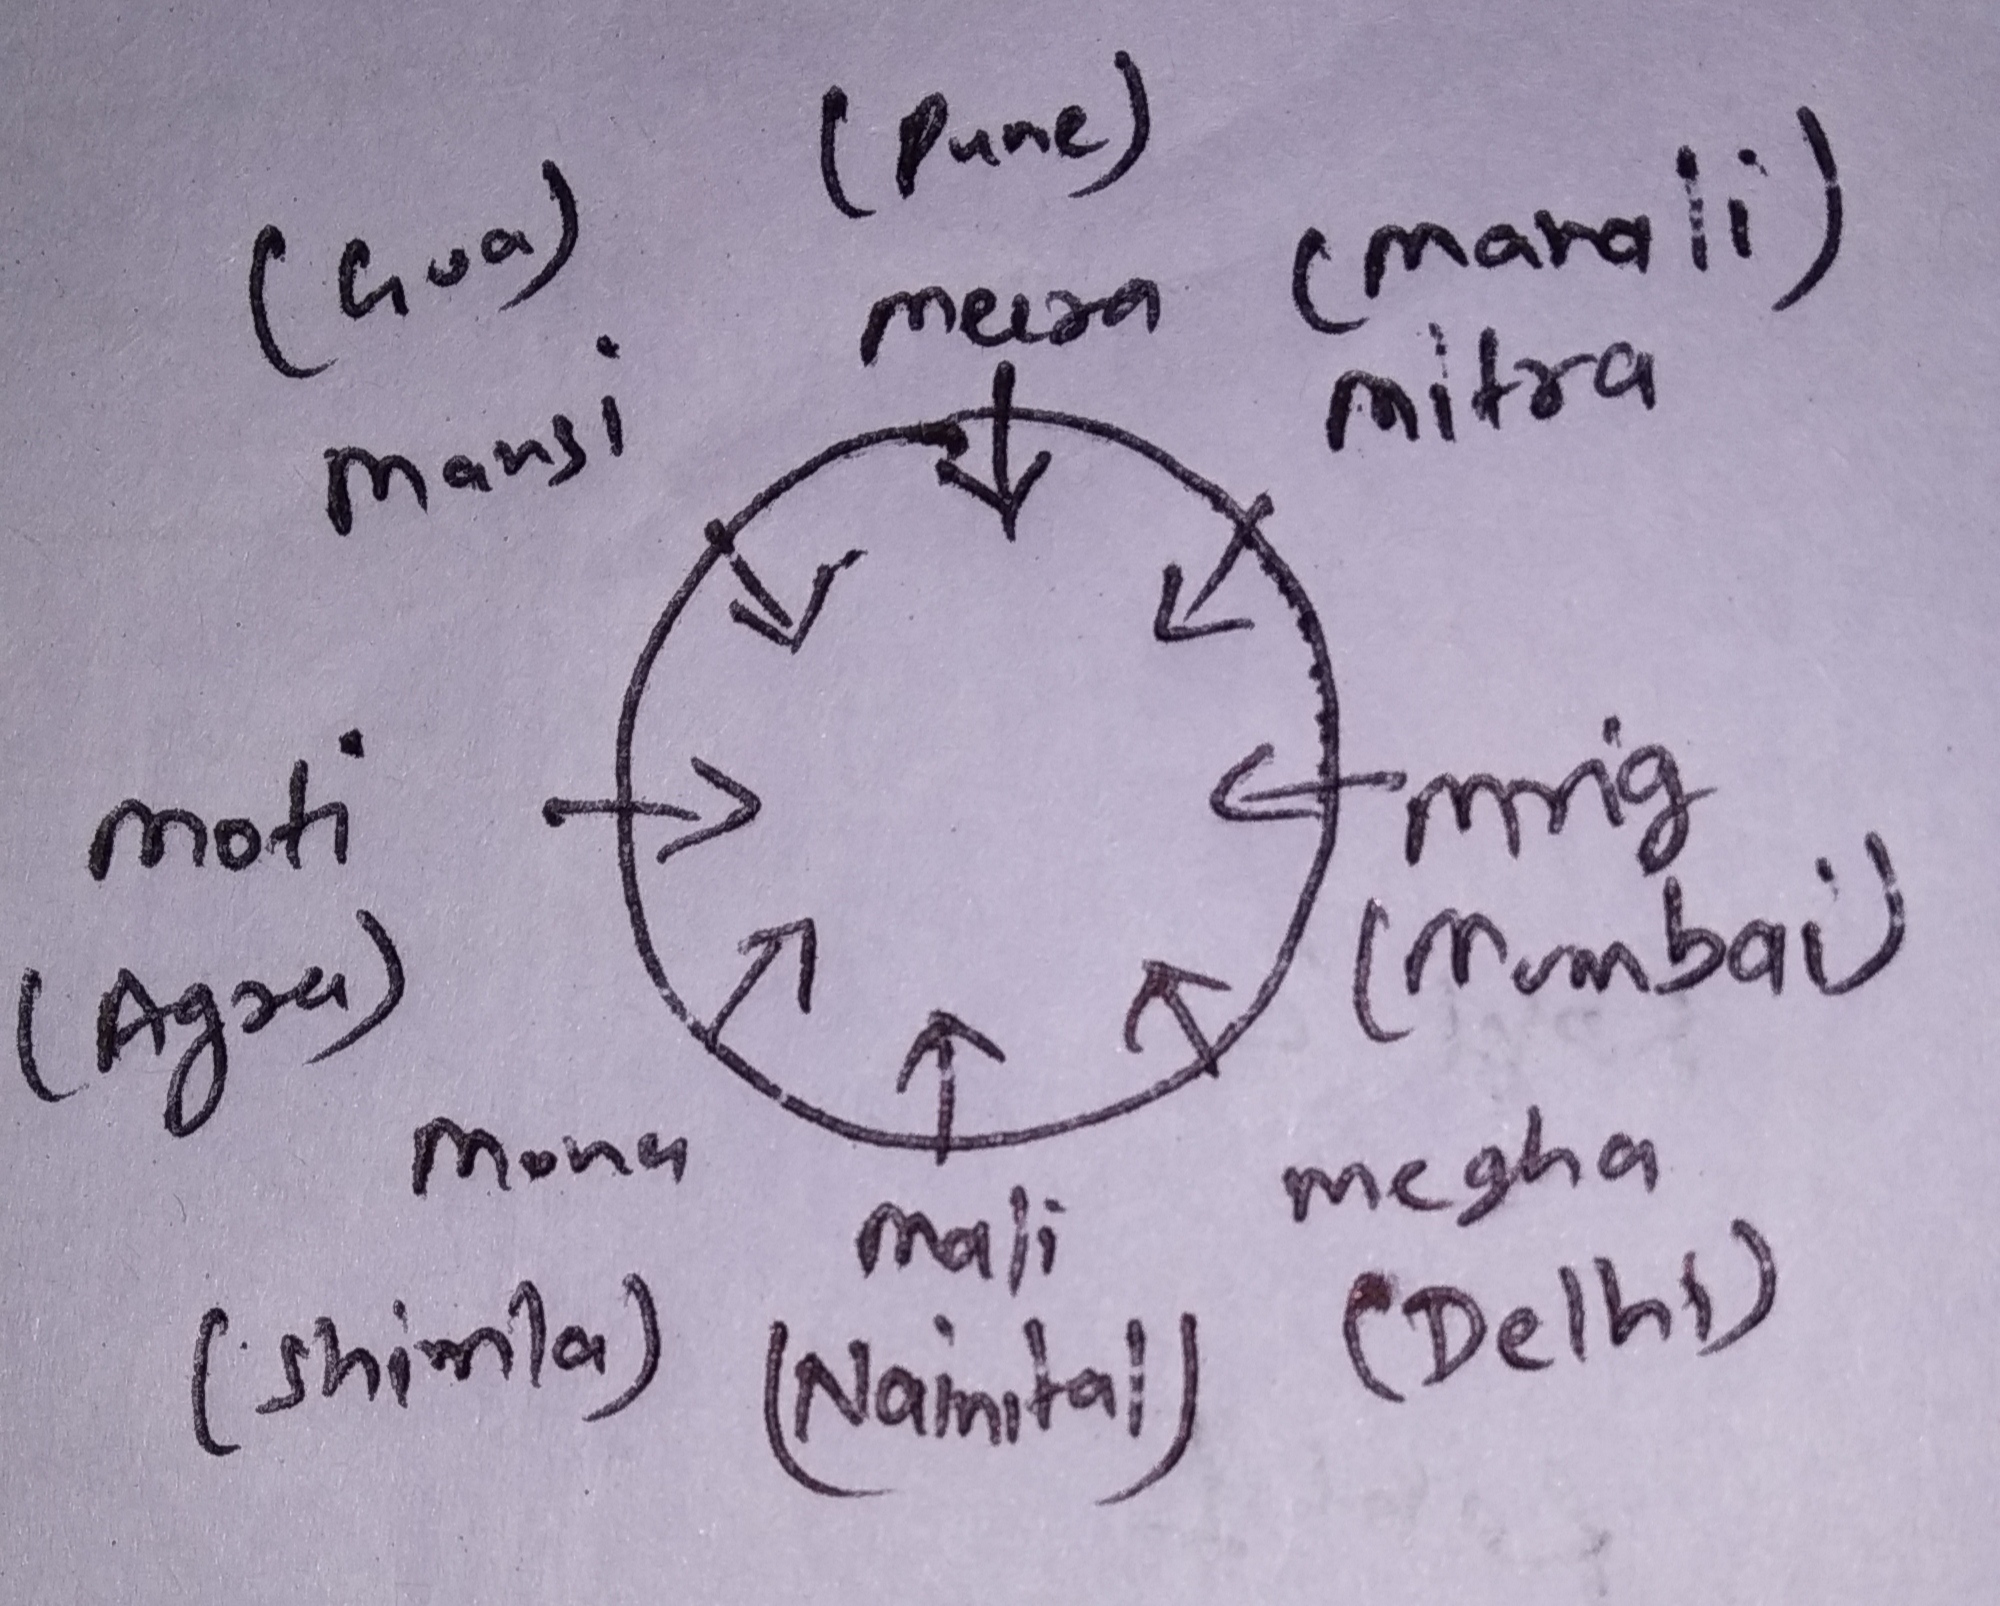 (Pune)
(Goa)
(manali)
meera
mitra
mansi
moti
mrig
(Agra)
(Mumbai)
mona
mali
megha
(shimla)
(Nainital)
(Delhi)